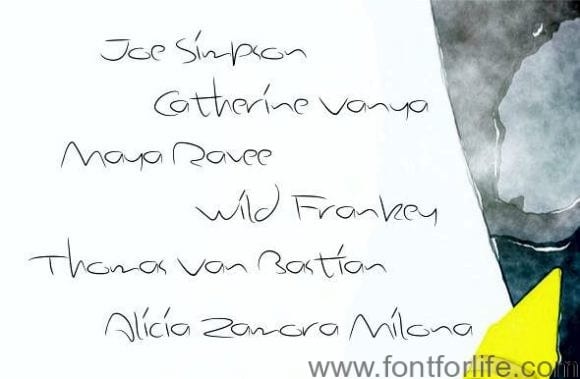 Joe Simpson
Catherine Vanya
Maya Ravee
Wild Frankey
Thomas Van Bastian
Alicia Zamora Milona
www.fontforlife.com